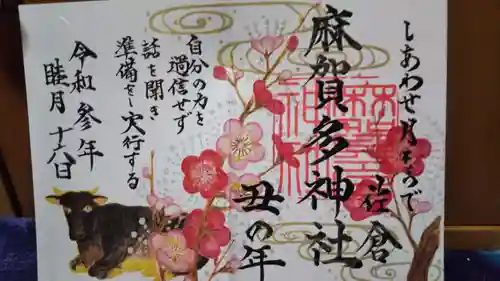 しあわせ月まうで
佐倉
麻加貝多神社
丑の年
自分の力を
過信せず
話を聞き
準備をし実行する
令和参年
睦月十六日